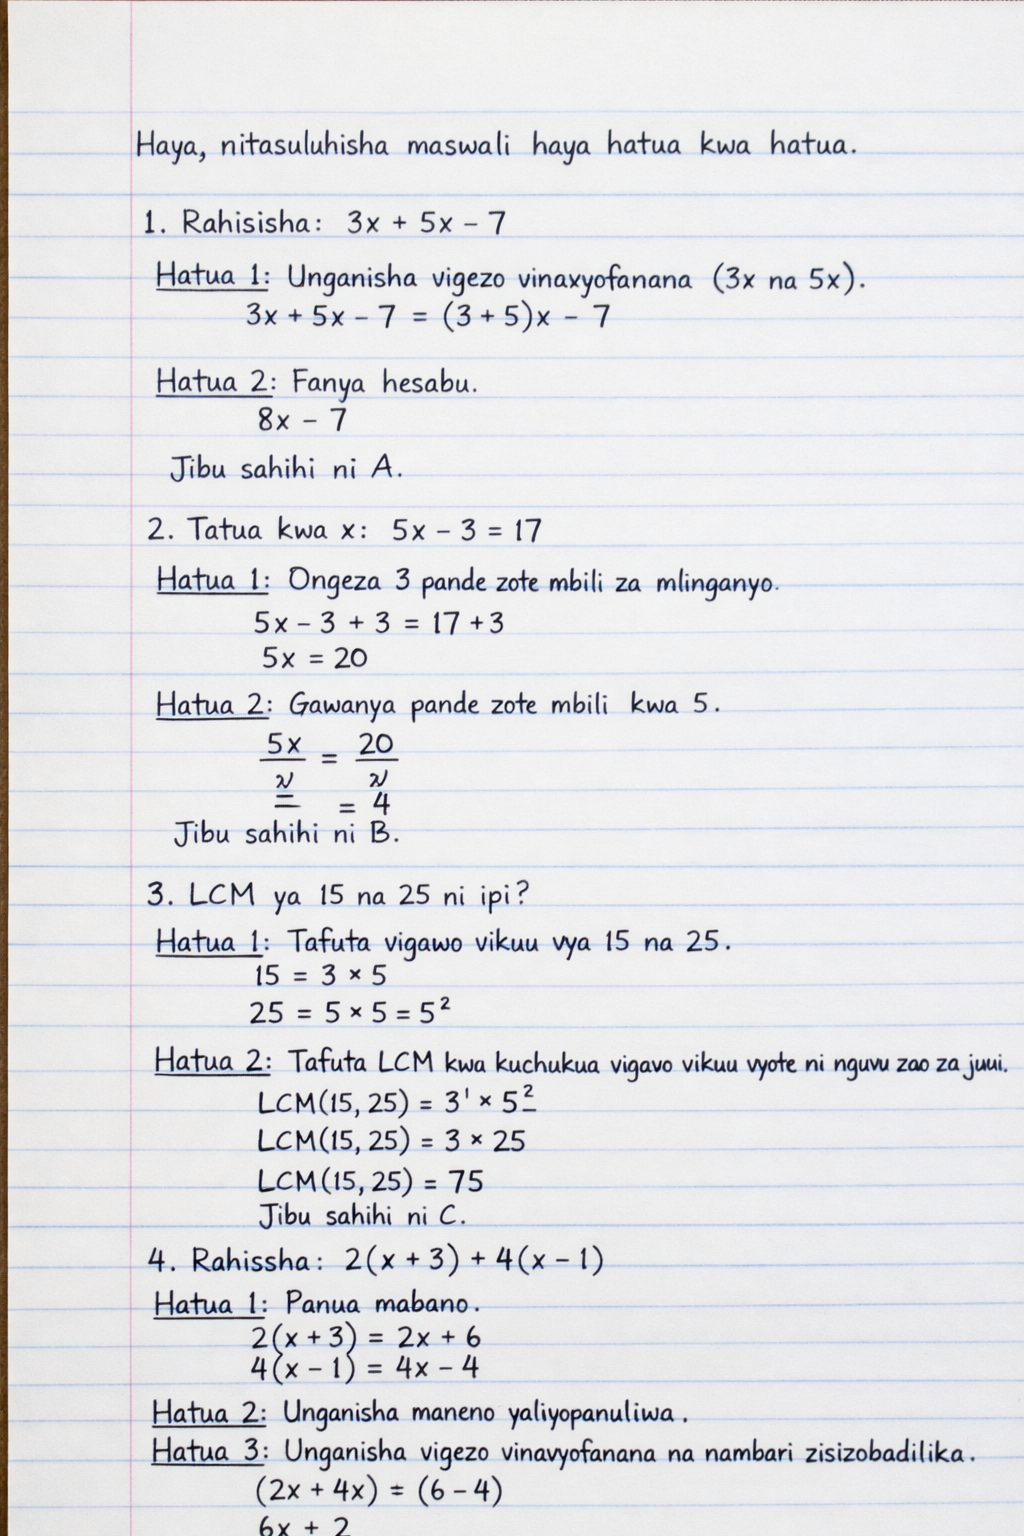 Haya, nitasuluhisha maswali haya hatua kwa hatua.
1. Rahisisha: 3x + 5x - 7
Hatua 1: Unganisha vigezo vinaxyofanana (3x na 5x).
3x + 5x - 7 = (3 + 5)x - 7
Hatua 2: Fanya hesabu.
8x - 7
Jibu sahihi ni A.
2. Tatua kwa x: 5x - 3 = 17
Hatua 1: Ongeza 3 pande zote mbili za mlinganyo.
5x - 3 + 3 = 17 + 3
5x = 20
Hatua 2: Gawanya pande zote mbili kwa 5.
5x = 20
= 4
Jibu sahihi ni B.
3. LCM ya 15 na 25 ni ipi?
Hatua 1: Tafuta vigawo vikuu vya 15 na 25.
15 = 3 × 5
25 = 5 × 5 = 5²
Hatua 2: Tafuta LCM kwa kuchukua vigavo vikuu vyote ni nguvu zao za juui.
LCM(15, 25) = 3¹ × 5²
LCM(15, 25) = 3 × 25
LCM(15, 25) = 75
Jibu sahihi ni C.
4. Rahissha: 2(x + 3) + 4(x - 1)
Hatua 1: Panua mabano.
2(x + 3) = 2x + 6
4(x - 1) = 4x - 4
Hatua 2: Unganisha maneno yaliyopanuliwa.
Hatua 3: Unganisha vigezo vinavyofanana na nambari zisizobadilika.
(2x + 4x) = (6 - 4)
6x + 2